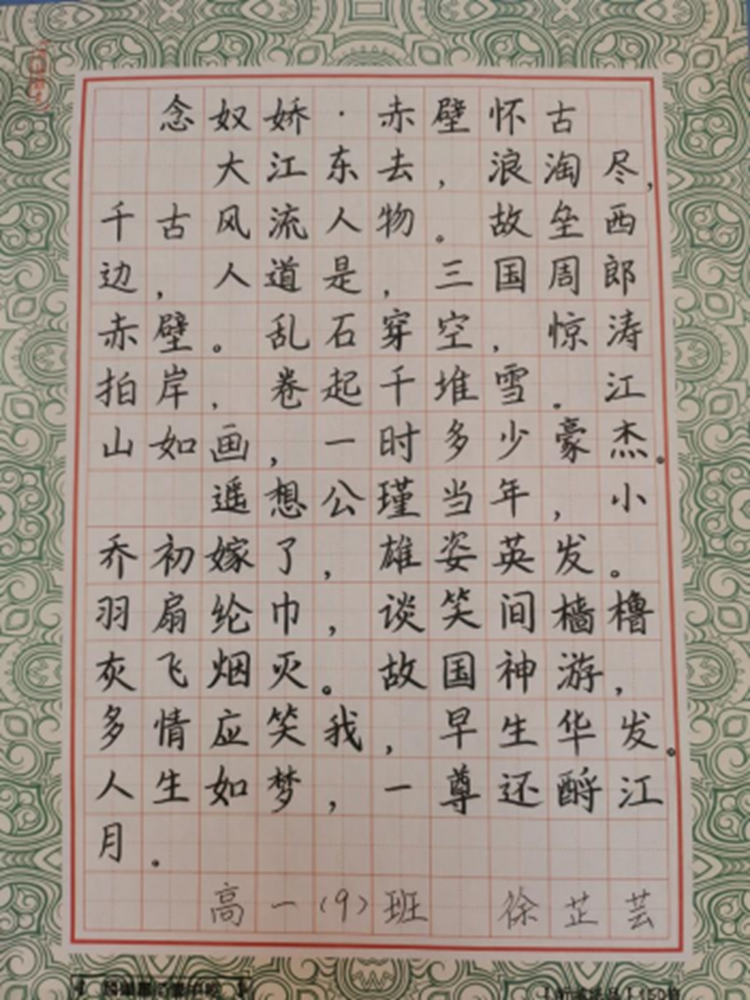 念奴娇·赤壁怀古
大江东去,浪淘尽,
千古风流人物。故垒西
边,人道是,三国周郎
赤壁。乱石穿空,惊涛
拍岸,卷起千堆雪。江
山如画,一时多少豪杰。
遥想公瑾当年,小
乔初嫁了,雄姿英发。
羽扇纶巾,谈笑间樯橹
灰飞烟灭。故国神游,
多情应笑我,早生华发。
人生如梦,一尊还酹江
月。
高一(9)班 徐芷芸